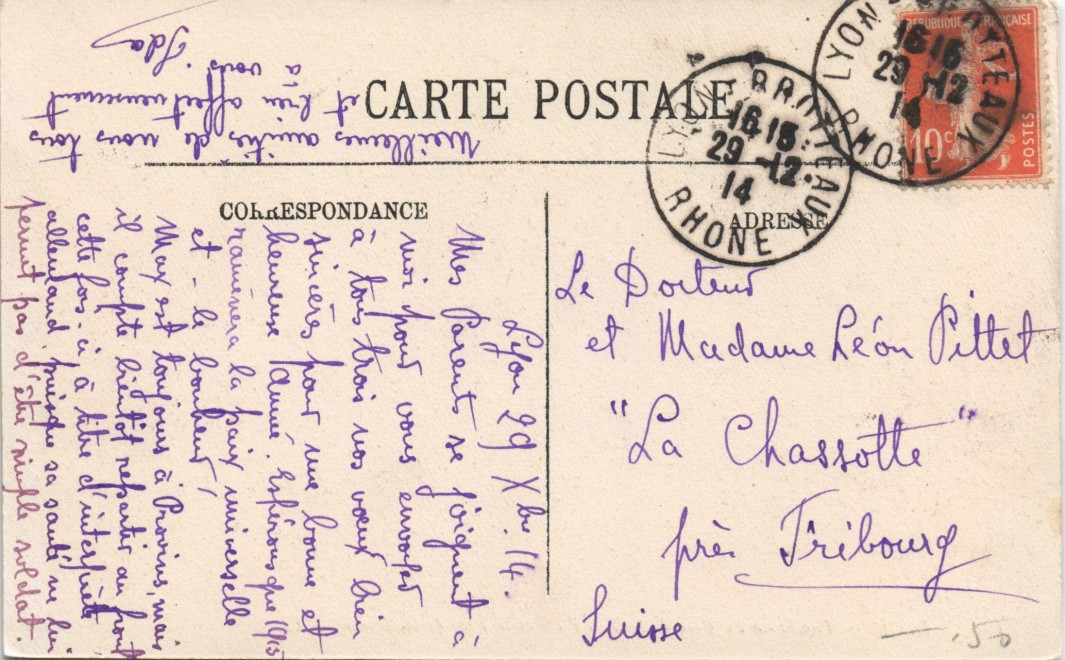 CARTE POSTALE
CORRESPONDANCE
ADRESSE
RÉPUBLIQUE FRANÇAISE
10c
POSTES
LYON - BROTTEAUX
16-15
29 -12
14
RHONE
LYON - BROTTEAUX
16-15
29 -12
14
RHONE
Lyon 29 Xbre 14.
Mes Parents se joignent à
moi pour vous envoyer
à tous trois nos vœux bien
sincères pour une bonne et
heureuse année. Espérons que 1915
ramènera la paix universelle
et - le bonheur,
Max est toujours à Provins, mais
il compte bientôt repartir au front
cette fois-ci à titre d'interprète
allemand, puisque sa santé ne lui
permet pas d'être simple soldat.
Meilleures amitiés de nous tous
et bien affectueusement
à vous. Ida
Le Docteur
et Madame Léon Pittet
"La Chassotte"
près Fribourg
Suisse
.50